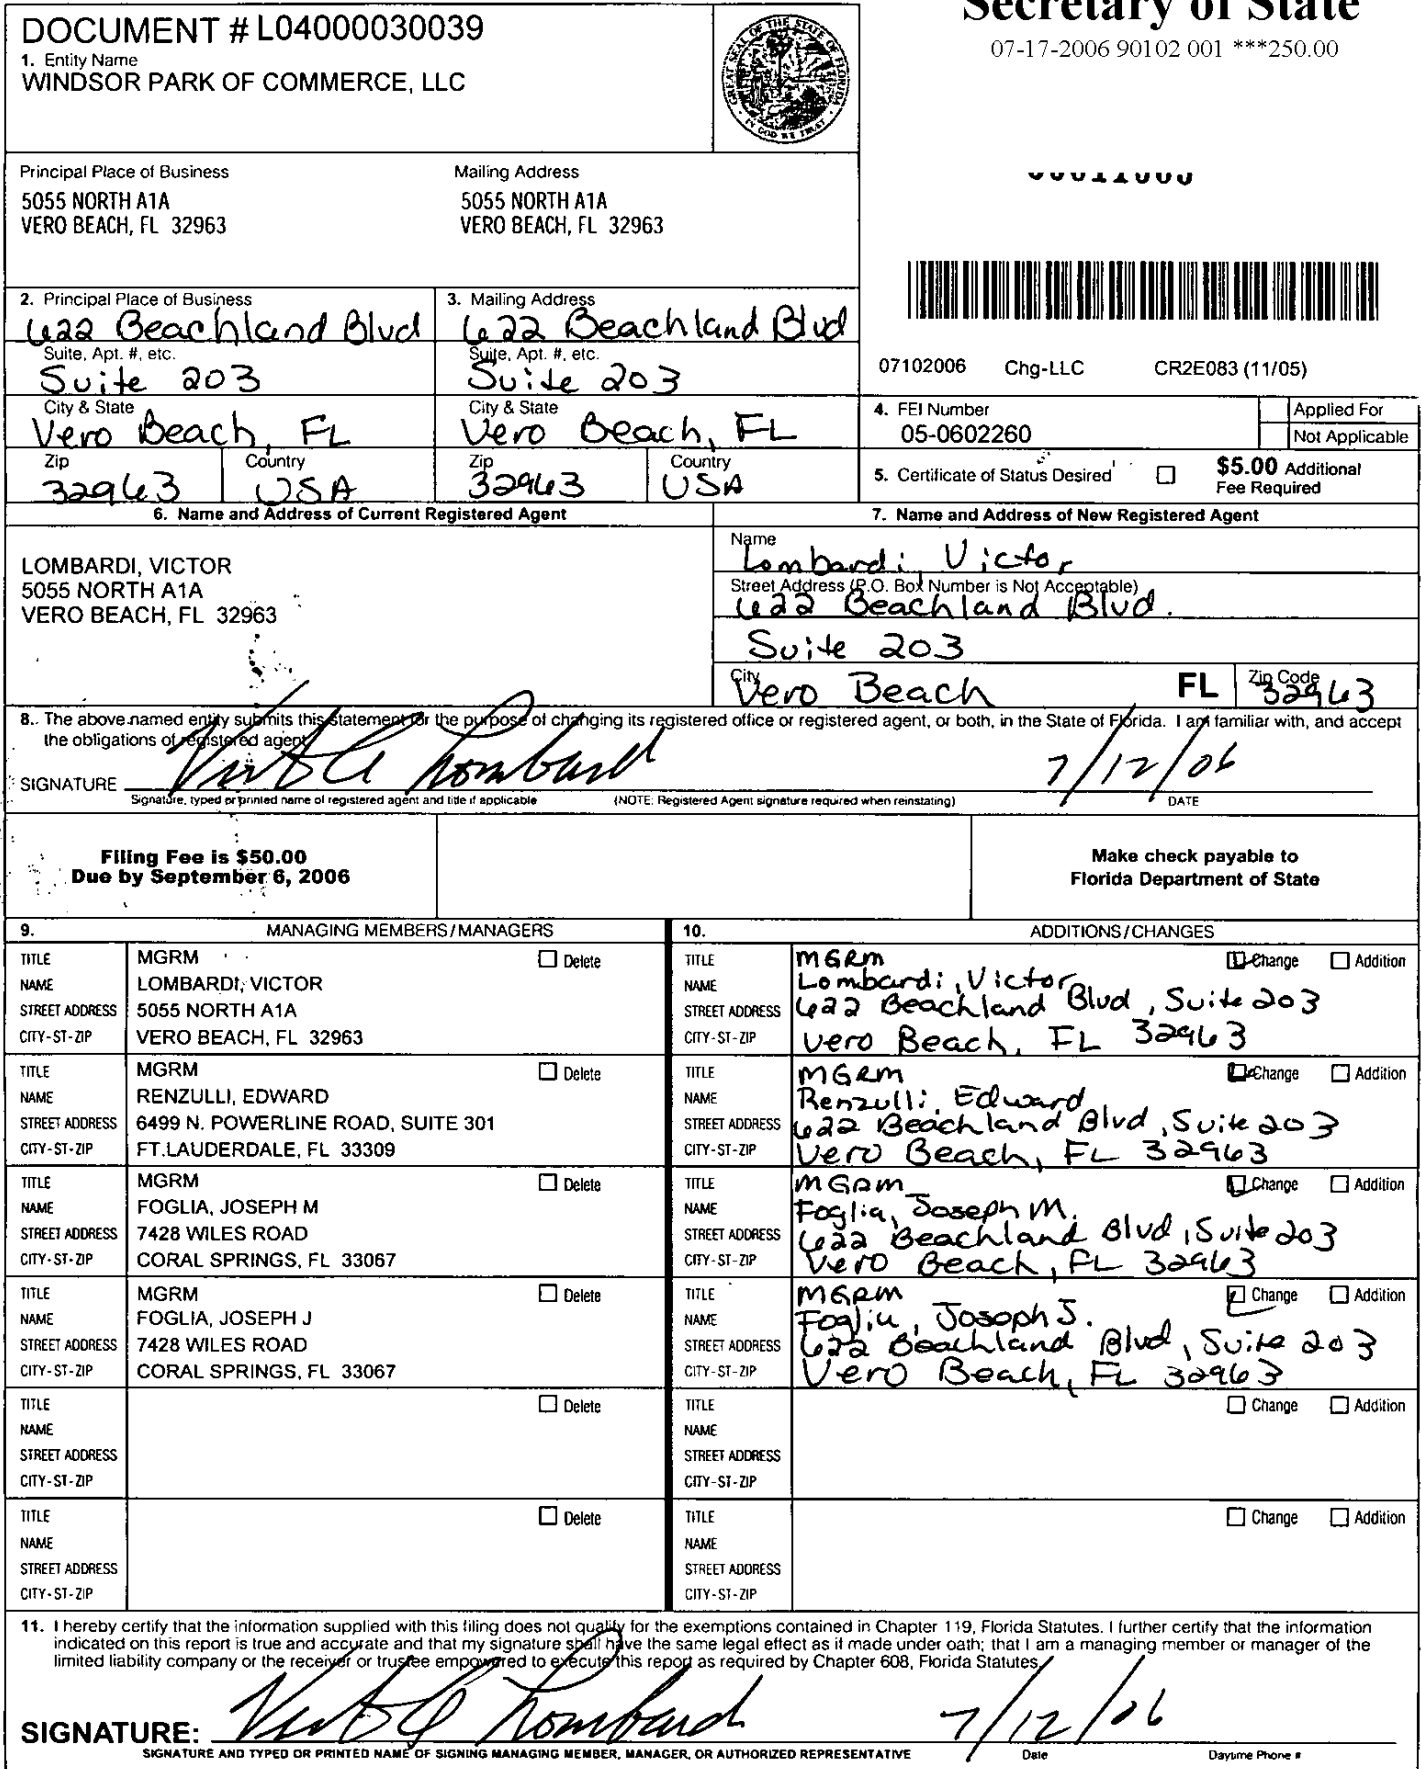 Secretary of State
07-17-2006 90102 001 ***250.00
DOCUMENT # L04000030039
1. Entity Name
WINDSOR PARK OF COMMERCE, LLC
GREAT SEAL OF THE STATE OF FLORIDA
IN GOD WE TRUST
Principal Place of Business
5055 NORTH A1A
VERO BEACH, FL 32963
Mailing Address
5055 NORTH A1A
VERO BEACH, FL 32963
2. Principal Place of Business
622 Beachland Blvd
Suite, Apt. #, etc.
Suite 203
City & State
Vero Beach, FL
Zip
32963
Country
USA
3. Mailing Address
622 Beachland Blvd
Suite, Apt. #, etc.
Suite 203
City & State
Vero Beach, FL
Zip
32963
Country
USA
07102006 Chg-LLC CR2E083 (11/05)
4. FEI Number
05-0602260
Applied For
Not Applicable
5. Certificate of Status Desired
$5.00 Additional
Fee Required
6. Name and Address of Current Registered Agent
LOMBARDI, VICTOR
5055 NORTH A1A
VERO BEACH, FL 32963
7. Name and Address of New Registered Agent
Name
Lombardi, Victor
Street Address (P.O. Box Number is Not Acceptable)
622 Beachland Blvd.
Suite 203
City
Vero Beach
FL
Zip Code
32963
8. The above named entity submits this statement for the purpose of changing its registered office or registered agent, or both, in the State of Florida. I am familiar with, and accept
the obligations of registered agent.
SIGNATURE
7/12/06
Signature, typed or printed name of registered agent and title if applicable
(NOTE: Registered Agent signature required when reinstating)
DATE
Filing Fee is $50.00
Due by September 6, 2006
Make check payable to
Florida Department of State
9. MANAGING MEMBERS/MANAGERS
TITLE MGRM Delete
NAME LOMBARDI, VICTOR
STREET ADDRESS 5055 NORTH A1A
CITY-ST-ZIP VERO BEACH, FL 32963
TITLE MGRM Delete
NAME RENZULLI, EDWARD
STREET ADDRESS 6499 N. POWERLINE ROAD, SUITE 301
CITY-ST-ZIP FT.LAUDERDALE, FL 33309
TITLE MGRM Delete
NAME FOGLIA, JOSEPH M
STREET ADDRESS 7428 WILES ROAD
CITY-ST-ZIP CORAL SPRINGS, FL 33067
TITLE MGRM Delete
NAME FOGLIA, JOSEPH J
STREET ADDRESS 7428 WILES ROAD
CITY-ST-ZIP CORAL SPRINGS, FL 33067
TITLE Delete
NAME
STREET ADDRESS
CITY-ST-ZIP
TITLE Delete
NAME
STREET ADDRESS
CITY-ST-ZIP
10. ADDITIONS/CHANGES
TITLE MGRM Change Addition
NAME Lombardi, Victor
STREET ADDRESS 622 Beachland Blvd, Suite 203
CITY-ST-ZIP Vero Beach, FL 32963
TITLE MGRM Change Addition
NAME Renzulli, Edward
STREET ADDRESS 622 Beachland Blvd, Suite 203
CITY-ST-ZIP Vero Beach, FL 32963
TITLE MGRM Change Addition
NAME Foglia, Joseph M.
STREET ADDRESS 622 Beachland Blvd, Suite 203
CITY-ST-ZIP Vero Beach, FL 32963
TITLE MGRM Change Addition
NAME Foglia, Joseph J.
STREET ADDRESS 622 Beachland Blvd, Suite 203
CITY-ST-ZIP Vero Beach, FL 32963
TITLE Change Addition
NAME
STREET ADDRESS
CITY-ST-ZIP
TITLE Change Addition
NAME
STREET ADDRESS
CITY-ST-ZIP
11. I hereby certify that the information supplied with this filing does not qualify for the exemptions contained in Chapter 119, Florida Statutes. I further certify that the information
indicated on this report is true and accurate and that my signature shall have the same legal effect as if made under oath; that I am a managing member or manager of the
limited liability company or the receiver or trustee empowered to execute this report as required by Chapter 608, Florida Statutes.
SIGNATURE:
7/12/06
SIGNATURE AND TYPED OR PRINTED NAME OF SIGNING MANAGING MEMBER, MANAGER, OR AUTHORIZED REPRESENTATIVE
Date
Daytime Phone #